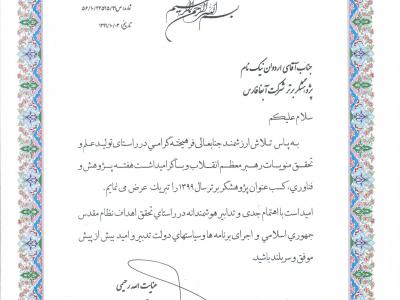 بسم الله الرحمن الرحیم
تاریخ: ۱۳۹۹/۱۰/۰۳
جناب آقای اردوان نیک نام
پژوهشگر برتر شرکت آبفا فارس
سلام علیکم
به پاس تلاش ارزشمند جنابعالی فرهیخته گرامی در راستای تولید علم و
تحقق منویات رهبر معظم انقلاب و با گرامیداشت هفته پژوهش و
فناوری، کسب عنوان پژوهشگر برتر سال ۱۳۹۹ را تبریک عرض می نمایم.
امید است با اهتمام جدی و تدابیر هوشمندانه در راستای تحقق اهداف نظام مقدس
جمهوری اسلامی و اجرای برنامه ها و سیاستهای دولت تدبیر و امید بیش از پیش
موفق و سربلند باشید.
عنایت اله رحیمی